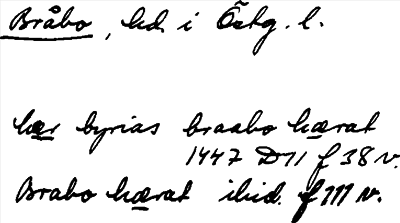 Bråbo, hd. i Östg. l.
hær byrias braabo hærat
1447 D11 f 38 v.
Brabo hærat ibid. f 111 v.